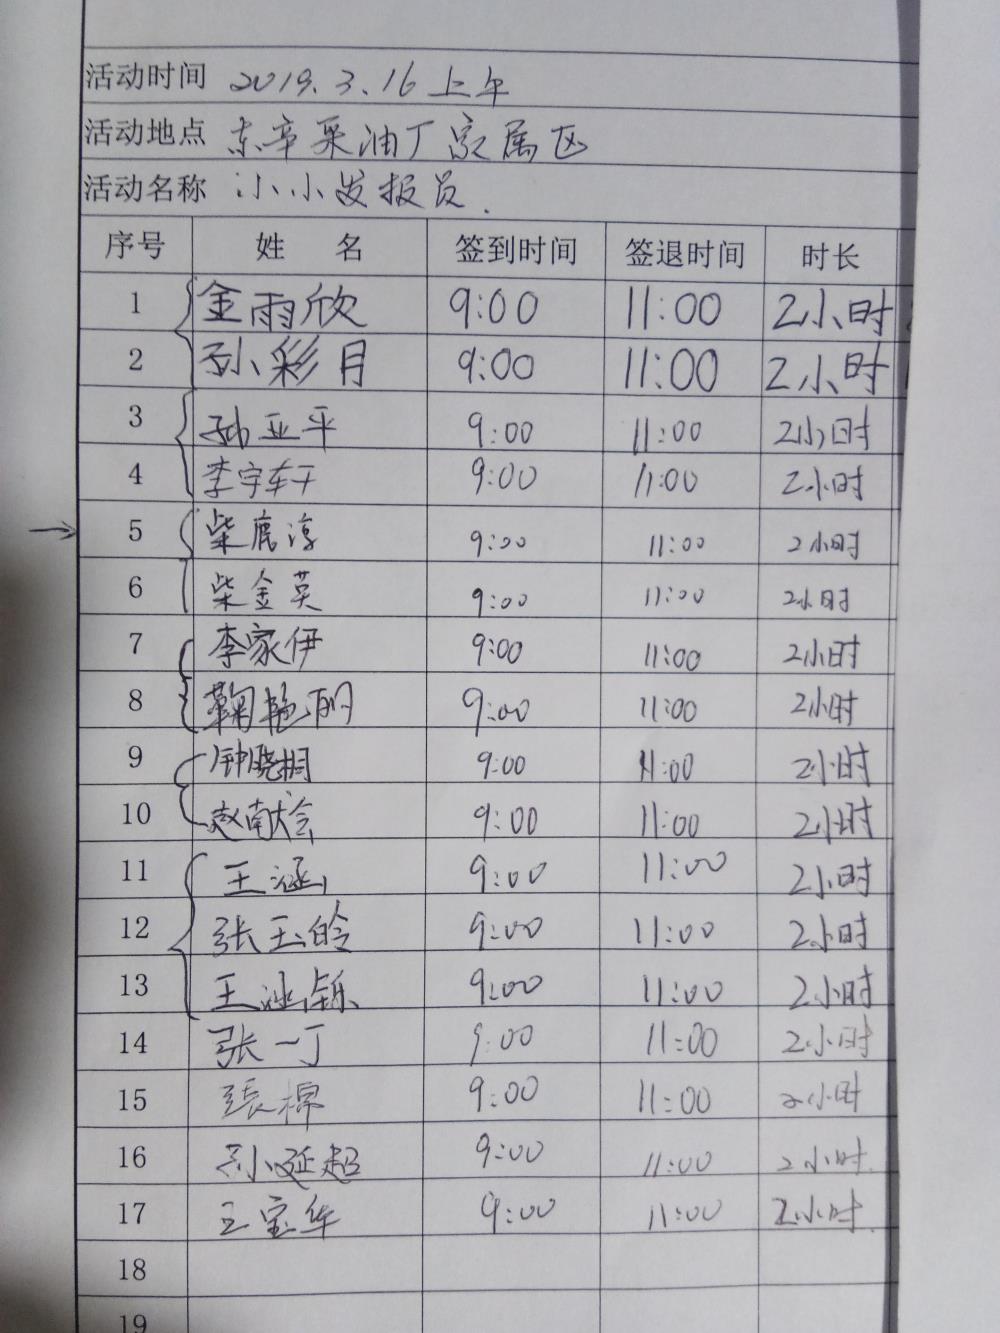 活动时间 2019.3.16上午
活动地点 东辛采油厂家属区
活动名称 小小发报员.
序号 姓 名 签到时间 签退时间 时长
1 金雨欣 9:00 11:00 2小时
2 孙彩月 9:00 11:00 2小时
3 孙亚平 9:00 11:00 2小时
4 李宇轩 9:00 11:00 2小时
5 柴鹿淳 9:00 11:00 2小时
6 柴金英 9:00 11:00 2小时
7 李家伊 9:00 11:00 2小时
8 鞠艳丽 9:00 11:00 2小时
9 钟晓桐 9:00 11:00 2小时
10 赵献会 9:00 11:00 2小时
11 王涵 9:00 11:00 2小时
12 张玉皊 9:00 11:00 2小时
13 王泓铄 9:00 11:00 2小时
14 张一丁 9:00 11:00 2小时
15 張棉 9:00 11:00 2小时
16 孙延超 9:00 11:00 2小时.
17 王宝华 9:00 11:00 2小时.
18
19